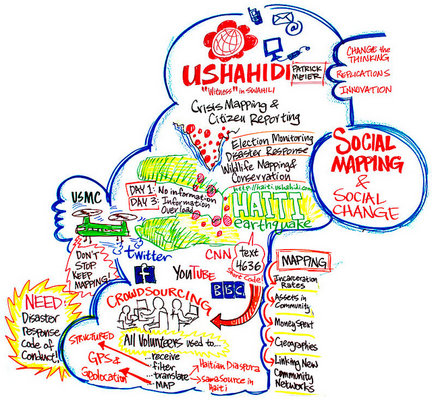 USHAHIDI
PATRICK
MEIER
"Witness" in SWAHILI
Crisis Mapping &
Citizen Reporting
Election Monitoring
Disaster Response
Wildlife Mapping &
Conservation
CHANGE the
THINKING
REPLICATIONS
INNOVATION
SOCIAL
MAPPING
&
SOCIAL
CHANGE
USMC
DAY 1: No information
DAY 3: Information
Overload
http://haiti.ushahidi.com
HAITI
earthquake
DON'T
STOP
KEEP
MAPPING!
twitter
f
YOUTUBE
CNN
BBC
text
4636
Short Code!
NEED:
Disaster
Response
Code of
Conduct!
CROWDSOURCING
All Volunteers used to...
...receive
filter
...translate
MAP
STRUCTURED
GPS &
Geolocation
Haitian Diaspora
Samasource in
Haiti
MAPPING
Incarceration
Rates
Assets in
Community
Money Spent
Geographies
Linking New
Community
Networks